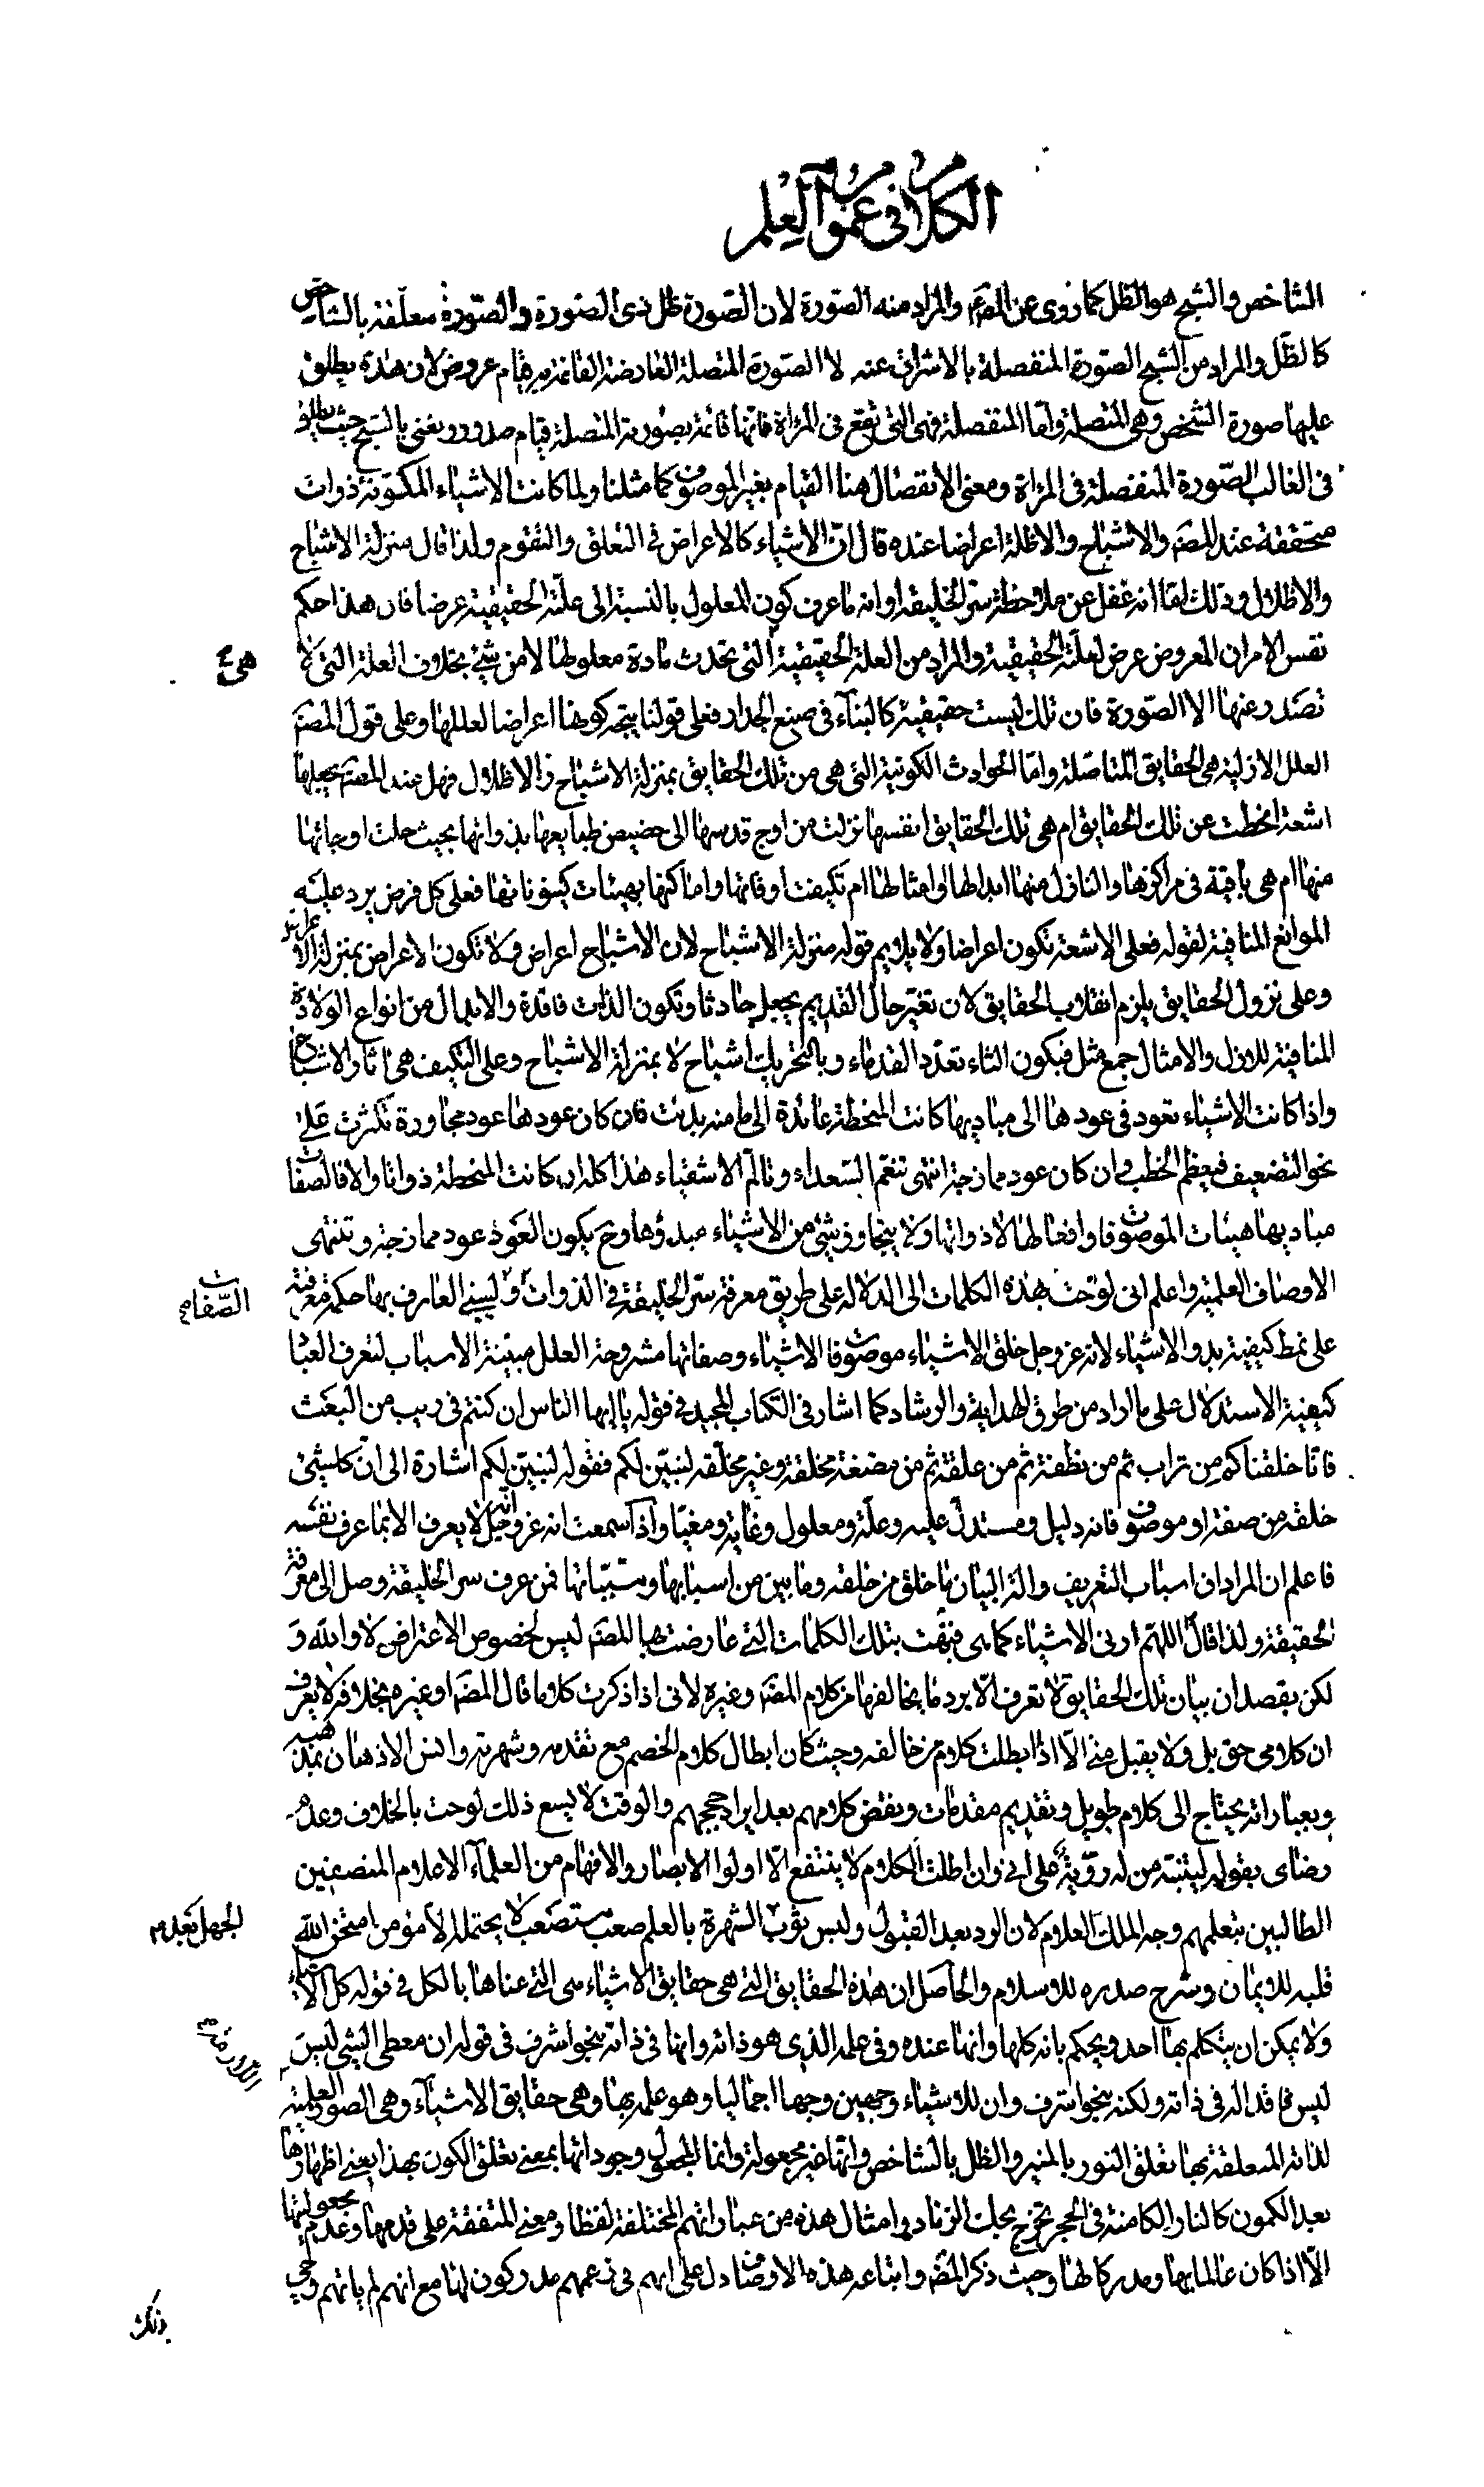 الكلام في عموم العلم
الشاخص والشبح هو الظل كما روى عن والمراد منه الصورة لان الصورة ظل ذى الصورة والصورة معلقة بالشاخص
كالظل والمراد من الشبح الصورة المنفصلة بالاشراق عنه لا الصورة المتصلة العارضة القائمة به قيام عروض لان هذه يطلق
عليها صورة الشخص وهى المتصلة وامّا المنفصلة فهى التى تقع فى المرآة فانّها قائمة بصورته المتصلة قيام صدور ونعنى بالشبح حيث يطلق
فى الغالب الصّورة المنفصلة فى المرآة ومعنى الانفصال هنا القيام بغير الموصوف كما مثلنا ولما كانت الاشياء المكوّنة ذوات
متحققة عند المصَ والاشباح والاظلة اعراضا عنده قال انّ الاشياء كالاعراض فى التعلق والتقوم ولذا قال منزلة الاشباح
والاظلال وذلك لمّا انه غفل عن ملاحظة سرّ الخليقة او انه ما عرف كون المعلول بالنسبة الى علّته الحقيقية عرضا فان هذا حكم
نفس الامر ان المعروض عرض لعلّته الحقيقية والمراد من العلة الحقيقية التى تحدث مادة معلولها لا من شئ بخلاف العلة التى لا
هى
تصدر عنها الا الصّورة فان تلك ليست حقيقية كالبنّاء فى صنع الجدار فعلى قولنا يتجه كونها اعراضا لعللها وعلى قول المصَ
العلل الازلية هى الحقايق المتاصّلة وامّا الحوادث الكونية التى هى من تلك الحقايق بمنزلة الاشباح والاظلال فهل عند المصَ يجعلها
اشعة انحطت عن تلك الحقايق ام هى تلك الحقايق انفسها نزلت من اوج قدسها الى حضيض طبايعها بذواتها بحيث خلت اوجاتها
منها ام هى باقية فى مراكزها والنازل منها ابدالها وامثالها ام تكيفت اوقاتها واماكنها بهيئات كينوناتها فعلى كل فرض يرد عليه
الموانع المنافية لقوله فعلى الاشعة تكون اعراضا ولا يلايم قوله منزلة الاشباح لان الاشباح اعراض ولا تكون الاعراض بمنزلة الاعراض
وعلى نزول الحقايق يلزم انقلاب الحقايق لان تغيّر حال القديم يجعله حادثا وتكون الذات فاقدة والابدال من انواع الولادة
المنافية للازل والامثال جمع مثل فيكون الثناء تعدّد القدماء وبالتحريك اشباح لا بمنزلة الاشباح وعلى التكيف هى اثار الاشباح
واذا كانت الاشياء تعود فى عودها الى مباديها كانت المنحطة عائدة الى ما منه بدئت فان كان عودها عود مجاورة تكثرت على
نحو التضعيف فيعظم الخطب وان كان عود ممازجة انتهى تنعّم السّعداء وتالّم الاشقياء هذا كله ان كانت المنحطة ذواتا والا فالصفات
مباديها هيئات الموصوفات وافعالها لا ذواتها ولا يتجاوز شئ من الاشياء مبدؤها وح يكون العود عود ممازجة وتنتهى
الصّفات
الاوصاف العلمية واعلم انى لوّحت بهذه الكلمات الى الدلالة على طريق معرفة سرّ الخليقة فى الذوات و العارف بها حكمة معرفة
على نمط كيفية بدو الاشياء لانه عز وجل خلق الاشياء موصوفات الاشياء وصفاتها مشروحة العلل مبيّنة الاسباب لتعرف العباد
كيفية الاستدلال على ما اراد من طرق الهداية والرشاد كما اشار فى الكتاب المجيد فى قوله يا ايها الناس ان كنتم فى ريب من البعث
فانّا خلقناكم من تراب ثم من نطفة ثم من علقة ثم من مضغة مخلقة وغير مخلّقة لنبيّن لكم فقوله لنبيّن لكم اشارة الى انّ كل شئ
خلقه من صفة او موصوف فانه دليل ومستدل عليه وعلّة ومعلول وغاية ومغيّا واذا سمعت انه عز وجل لا يعرف الا بما عرف نفسه
فاعلم ان المراد ان اسباب التعريف وآلة البيان ما خلق من خلقه وما بين من اسبابها ومسبّباتها فمن عرف سر الخليقة وصل الى معرفة
الحقيقة ولذا قال اللهّم ارنى الاشياء كما هى فنبّهت بتلك الكلمات التى عارضت بها المصَ ليس لخصوص الاعتراض لا والله و
لكن بقصد ان بيان تلك الحقايق لا تعرف الّا برد ما يخالفها من كلام المصَ وغيره لانى اذا ذكرت كلاما قال المصَ او غيره بخلافه لا يعرف
ان كلامى حق بل ولا يقبل منى الّا اذا ابطلت كلام من خالفه وحيث كان ابطال كلام الخصم مع تقدمه وشهرته وانس الاذهان بمذهبه
وبعباراته يحتاج الى كلام طويل وتقديم مقدمات ونقض كلامهم بعد ايراد حججهم والوقت لا يسع ذلك لوحت بالخلاف وعدم
رضاى بقوله ليتنبّه من له رويّة على انى وان اطلت الكلام لا ينتفع الّا اولوا الابصار والافهام من العلماء الاعلام المنصفين
الطالبين بتعلمهم وجه الملك العلام لان الرد بعد القبول ولبس ثوب الشهرة بالعلم صعب مستصعب لا يحتمله الا مؤمن امتحن الله
الجهل بعد
قلبه للايمان وشرح صدره للاسلام والحاصل ان هذه الحقايق التى هى حقايق الاشياء هى التى عناها بالكل فى قوله كل الاشياء
ولا يمكن ان يتكلم بها احد ويحكم بانه كلها وانها عنده وفى علمه الذى هو ذاته وانها فى ذاته بنحو اشرف فى قوله ان معطى الشئ ليس
ليس فاقدا له فى ذاته ولكنه بنحو اشرف وان للاشياء وجهين وجها اجماليا وهو علمه بها وهى حقايق الاشياء وهى الصور العلمية
لذاته المتعلقة بها تعلق النور بالمنير والظل بالشاخص وانّها غير مجعولة وانما المجعول وجوداتها بمعنى تعلق الكون بهذا يعنى اظهارها
بعد الكمون كالنار الكامنة فى الحجر تخرج بحك الزناد وامثال هذه من عباراتهم المختلفة لفظا ومعنى المتفقة على قدمها وعدم مجعوليتها
الّا اذا كان عالما بها ومدركا لها وحيث ذكر المصَ واتباعه هذه الاوصاف دل على انهم فى زعمهم مدركون لها مع انهم لم ياتهم وحى
بذلك